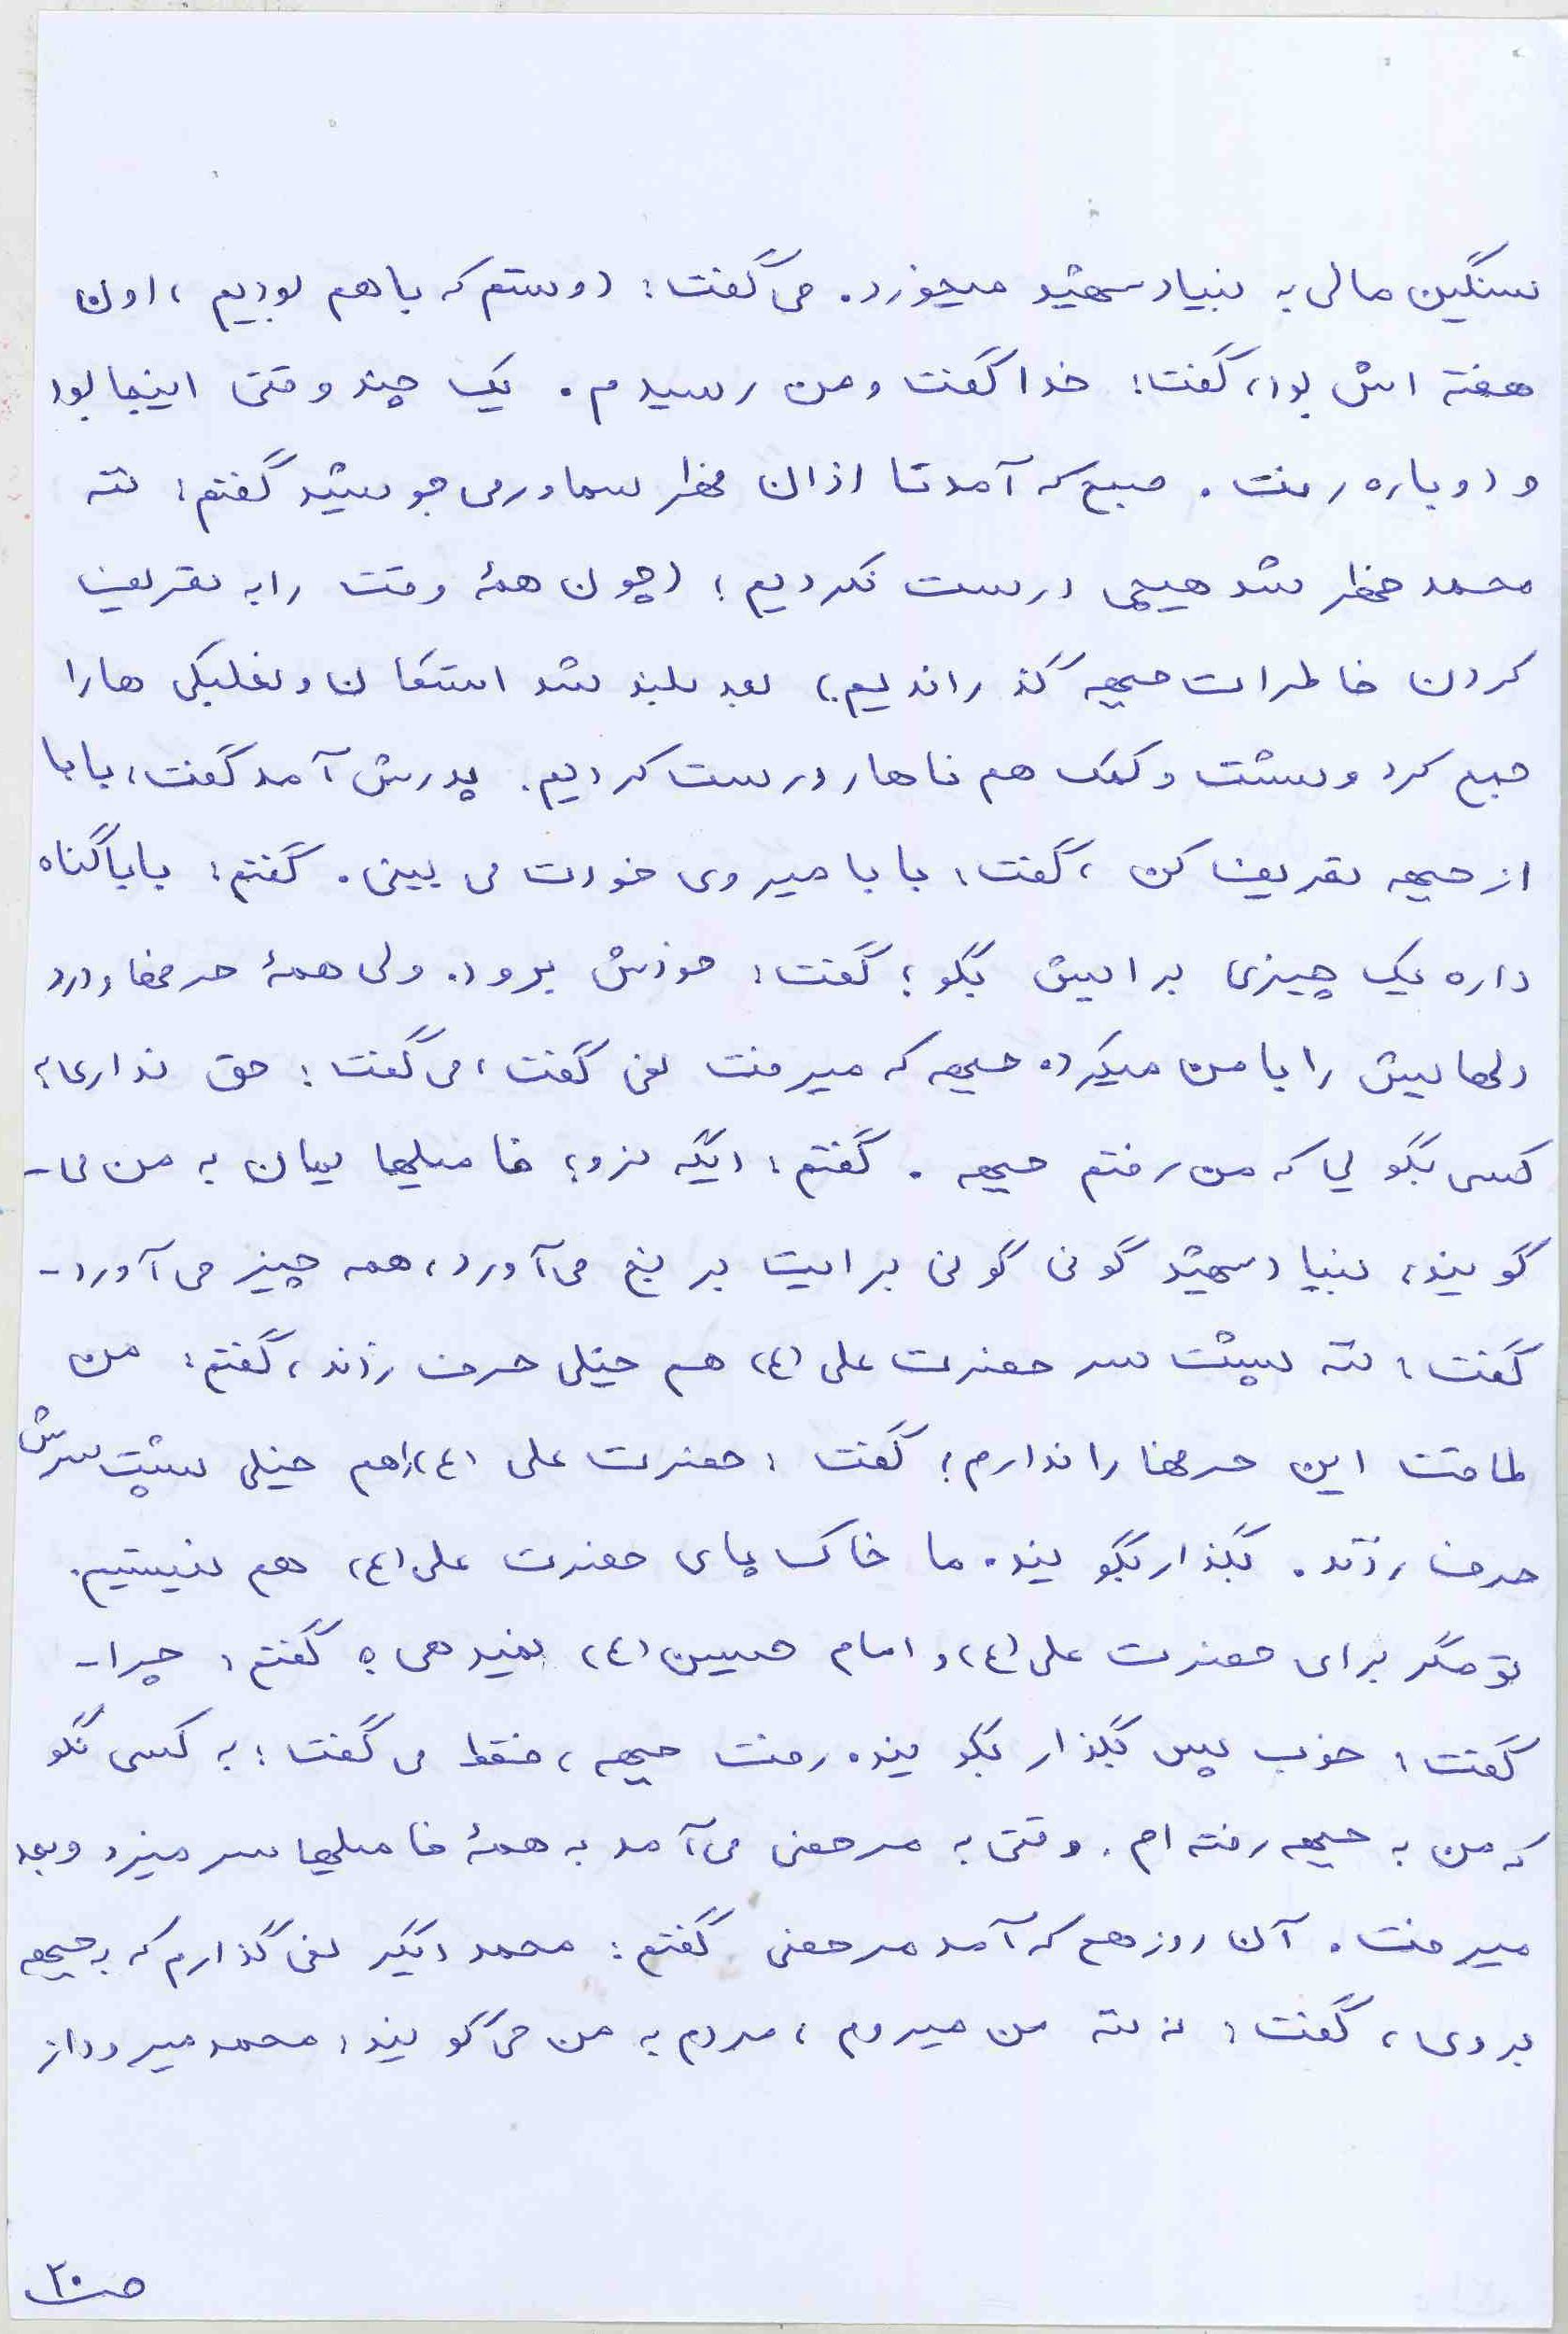 سنگین مالی به بنیاد شهید میخورد. می گفت: دوستم که با هم بودیم، اون
هفته اش بود، گفت: خدا گفت و من رسیدم. یک چند وقتی اینجا بود
و دوباره رفت. صبح که آمد تا اذان ظهر سماور می جوشید گفتم: ننه
محمد ظهر شد هیچی درست نکردیم؛ (چون همۀ وقت را به تعریف
کردن خاطرات جبهه گذراندیم.) بعد بلند شد استکان و نعلبکی ها را
جمع کرد و شست و کمک هم ناهار درست کردیم. پدرش آمد گفت: بابا
از جبهه تعریف کن، گفت: بابا میروی خودت می بینی. گفتم: بابا گناه
داره یک چیزی برایش بگو؛ گفت: خودش برود. ولی همۀ حرفها و درد
دلهایش را با من میکرد. جبهه که میرفت نمی گفت، می گفت: حق نداری به
کسی بگویی که من رفتم جبهه. گفتم: دیگه نرو؛ فامیلها میان به من می-
گویند، بنیاد شهید گونی گونی برایت برنج می آورد، همه چیز می آورد-
گفت: ننه پشت سر حضرت علی (ع) هم خیلی حرف زدند، گفتم: من
طاقت این حرفها را ندارم؛ گفت: حضرت علی (ع) هم خیلی پشت سرش
حرف زدند. بگذار بگویند. ما خاک پای حضرت علی (ع) هم نیستیم.
تو مگر برای حضرت علی (ع) و امام حسین (ع) نمیدهی؟ گفتم: چرا-
گفت: خوب پس بگذار بگویند. رفت جبهه، فقط می گفت: به کسی نگو
که من به جبهه رفته ام. وقتی به مرخصی می آمد به همۀ فامیلها سر میزد و بعد
میرفت. آن روز هم که آمد مرخصی گفتم: محمد دیگر نمی گذارم که به جبهه
بروی، گفت: نه ننه من میروم، مردم به من می گویند: محمد میرود از
ص ۲۰